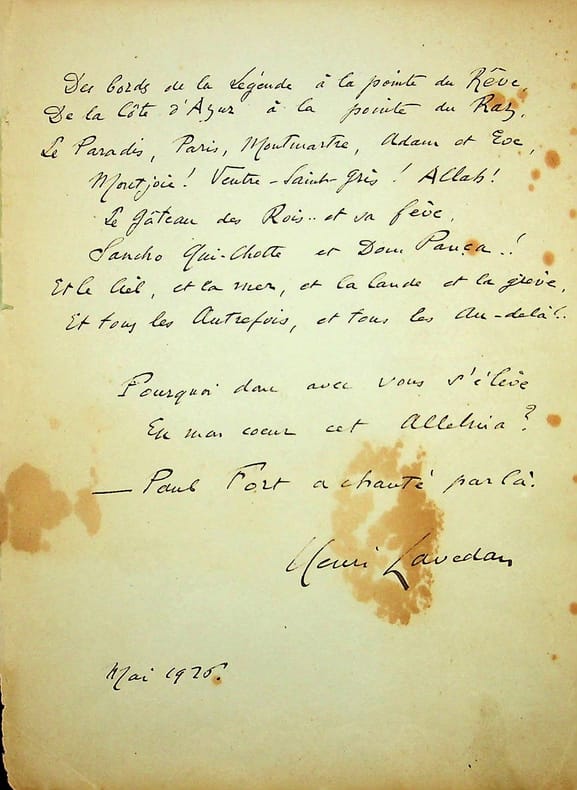 Des bords de la Légende à la pointe du Rêve,
De la Côte d'Azur à la pointe du Raz,
Le Paradis, Paris, Montmartre, Adam et Eve,
Montjoie! Ventre-Saint-Gris! Allah!
Le gâteau des Rois.. et sa fève,
Sancho Qui-Chotte et Dom Pança..!
Et le Ciel, et la mer, et la lande et la grève,
Et tous les Autrefois, et tous les Au-delà!..
Pourquoi donc avec vous s'élève
En mon coeur cet Alleluia?
— Paul Fort a chanté par là.
Henri Lavedan
Mai 1926.